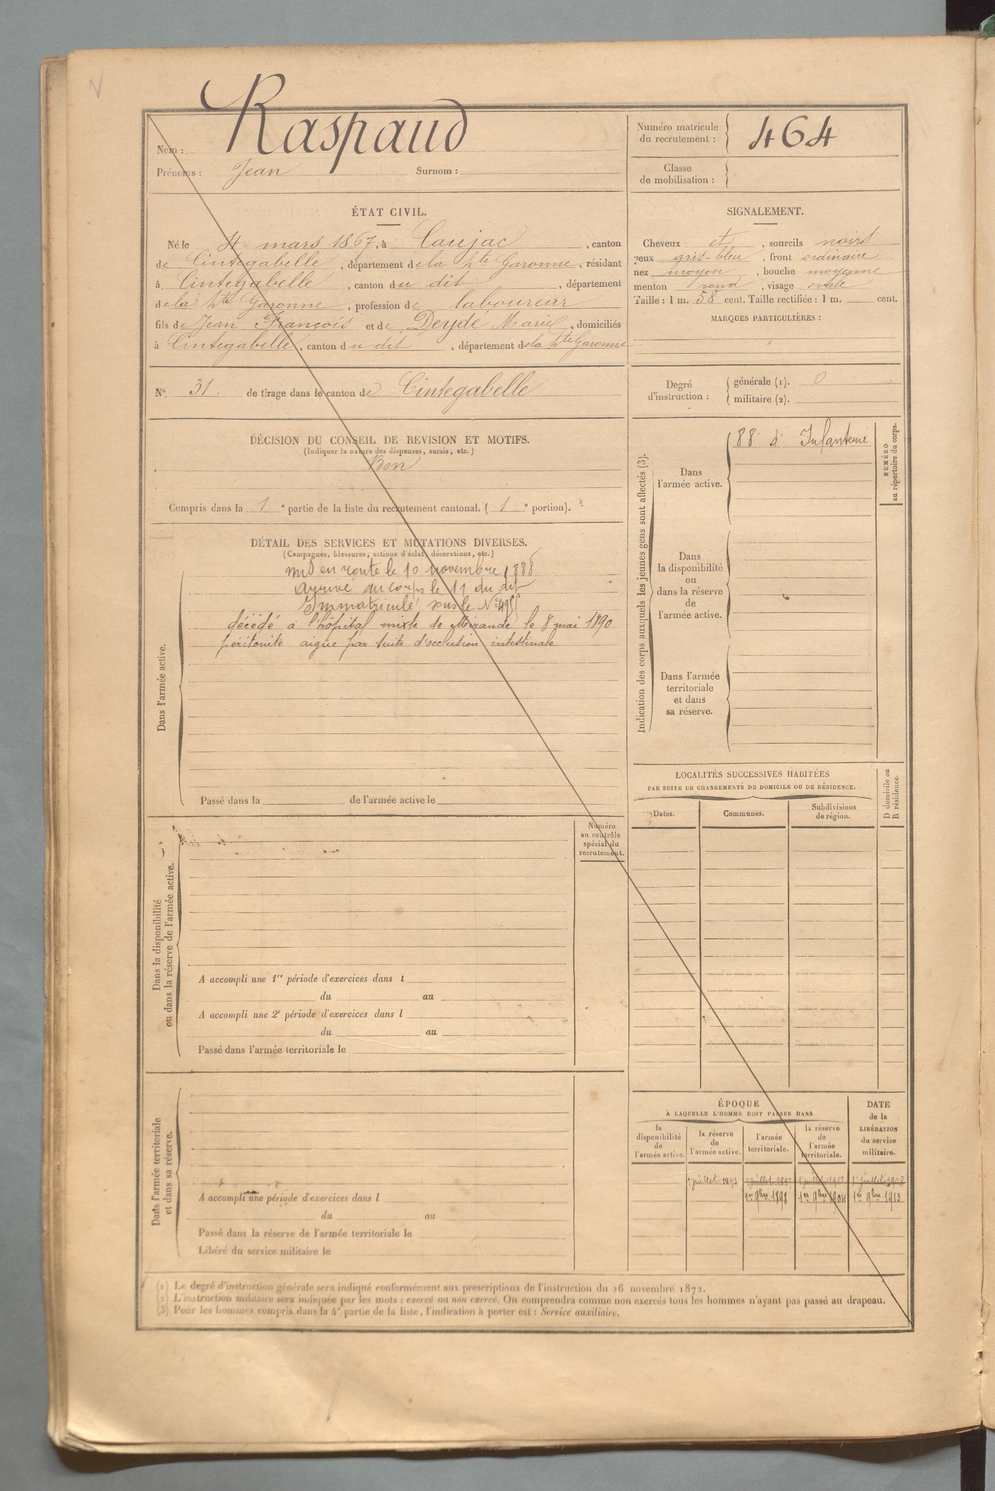 Nom : Raspaud
Prénoms : Jean Surnom :
Numéro matricule du recrutement : 464
Classe de mobilisation :
ÉTAT CIVIL.
Né le 4 mars 1867, à Caujac, canton
de Cintegabelle, département de la Hte Garonne, résidant
à Cintegabelle, canton du dit, département
de la Hte Garonne, profession de laboureur
fils de Jean François et de Deydé Marie, domiciliés
à Cintegabelle, canton du dit, département de la Hte Garonne
SIGNALEMENT.
Cheveux et, sourcils noirs
yeux gris-bleu, front ordinaire
nez moyen, bouche moyenne
menton rond, visage ovale
Taille : 1 m. 58 cent. Taille rectifiée : 1 m. cent.
MARQUES PARTICULIÈRES :
N° 31 de tirage dans le canton de Cintegabelle
Degré d'instruction : générale (1). 0
militaire (2).
DÉCISION DU CONSEIL DE REVISION ET MOTIFS.
(Indiquer la nature des dispenses, sursis, etc.)
Bon
Compris dans la 1e partie de la liste du recrutement cantonal. ( 1e portion).
DÉTAIL DES SERVICES ET MUTATIONS DIVERSES.
(Campagnes, blessures, actions d'éclat, décorations, etc.)
Dans l'armée active.
mis en route le 10 novembre 1888
arrivé au corps le 11 du dit
Immatriculé sous le N°
décédé à l'hôpital mixte de Mirande le 8 mai 1890
péritonite aigue par suite d'occlusion intestinale
Passé dans la de l'armée active le
Indication des corps auxquels les jeunes gens sont affectés (3).
Dans l'armée active.
88 d' Infanterie
NUMÉRO au répertoire du corps.
Dans la disponibilité ou dans la réserve de l'armée active.
Dans l'armée territoriale et dans sa réserve.
LOCALITÉS SUCCESSIVES HABITÉES
PAR SUITE DE CHANGEMENTS DE DOMICILE OU DE RÉSIDENCE.
D domicile ou R résidence.
Dates. Communes. Subdivisions de région.
Dans la disponibilité ou dans la réserve de l'armée active.
Numéro au contrôle spécial du recrutement.
A accompli une 1re période d'exercices dans l
du au
A accompli une 2e période d'exercices dans l
du au
Passé dans l'armée territoriale le
Dans l'armée territoriale et dans sa réserve.
A accompli une période d'exercices dans l
du au
Passé dans la réserve de l'armée territoriale le
Libéré du service militaire le
ÉPOQUE
À LAQUELLE L'HOMME DOIT PASSER DANS
DATE de la LIBÉRATION du service militaire.
la disponibilité de l'armée active.
la réserve de l'armée active.
l'armée territoriale.
la réserve de l'armée territoriale.
juillet 1893
1er 9bre 1898 1er 9bre 1904 1er 9bre 1913
(1) Le degré d'instruction générale sera indiqué conformément aux prescriptions de l'instruction du 26 novembre 1872.
(2) L'instruction militaire sera indiquée par les mots : exercé ou non exercé. On comprendra comme non exercés tous les hommes n'ayant pas passé au drapeau.
(3) Pour les hommes compris dans la 4e partie de la liste, l'indication à porter est : Service auxiliaire.